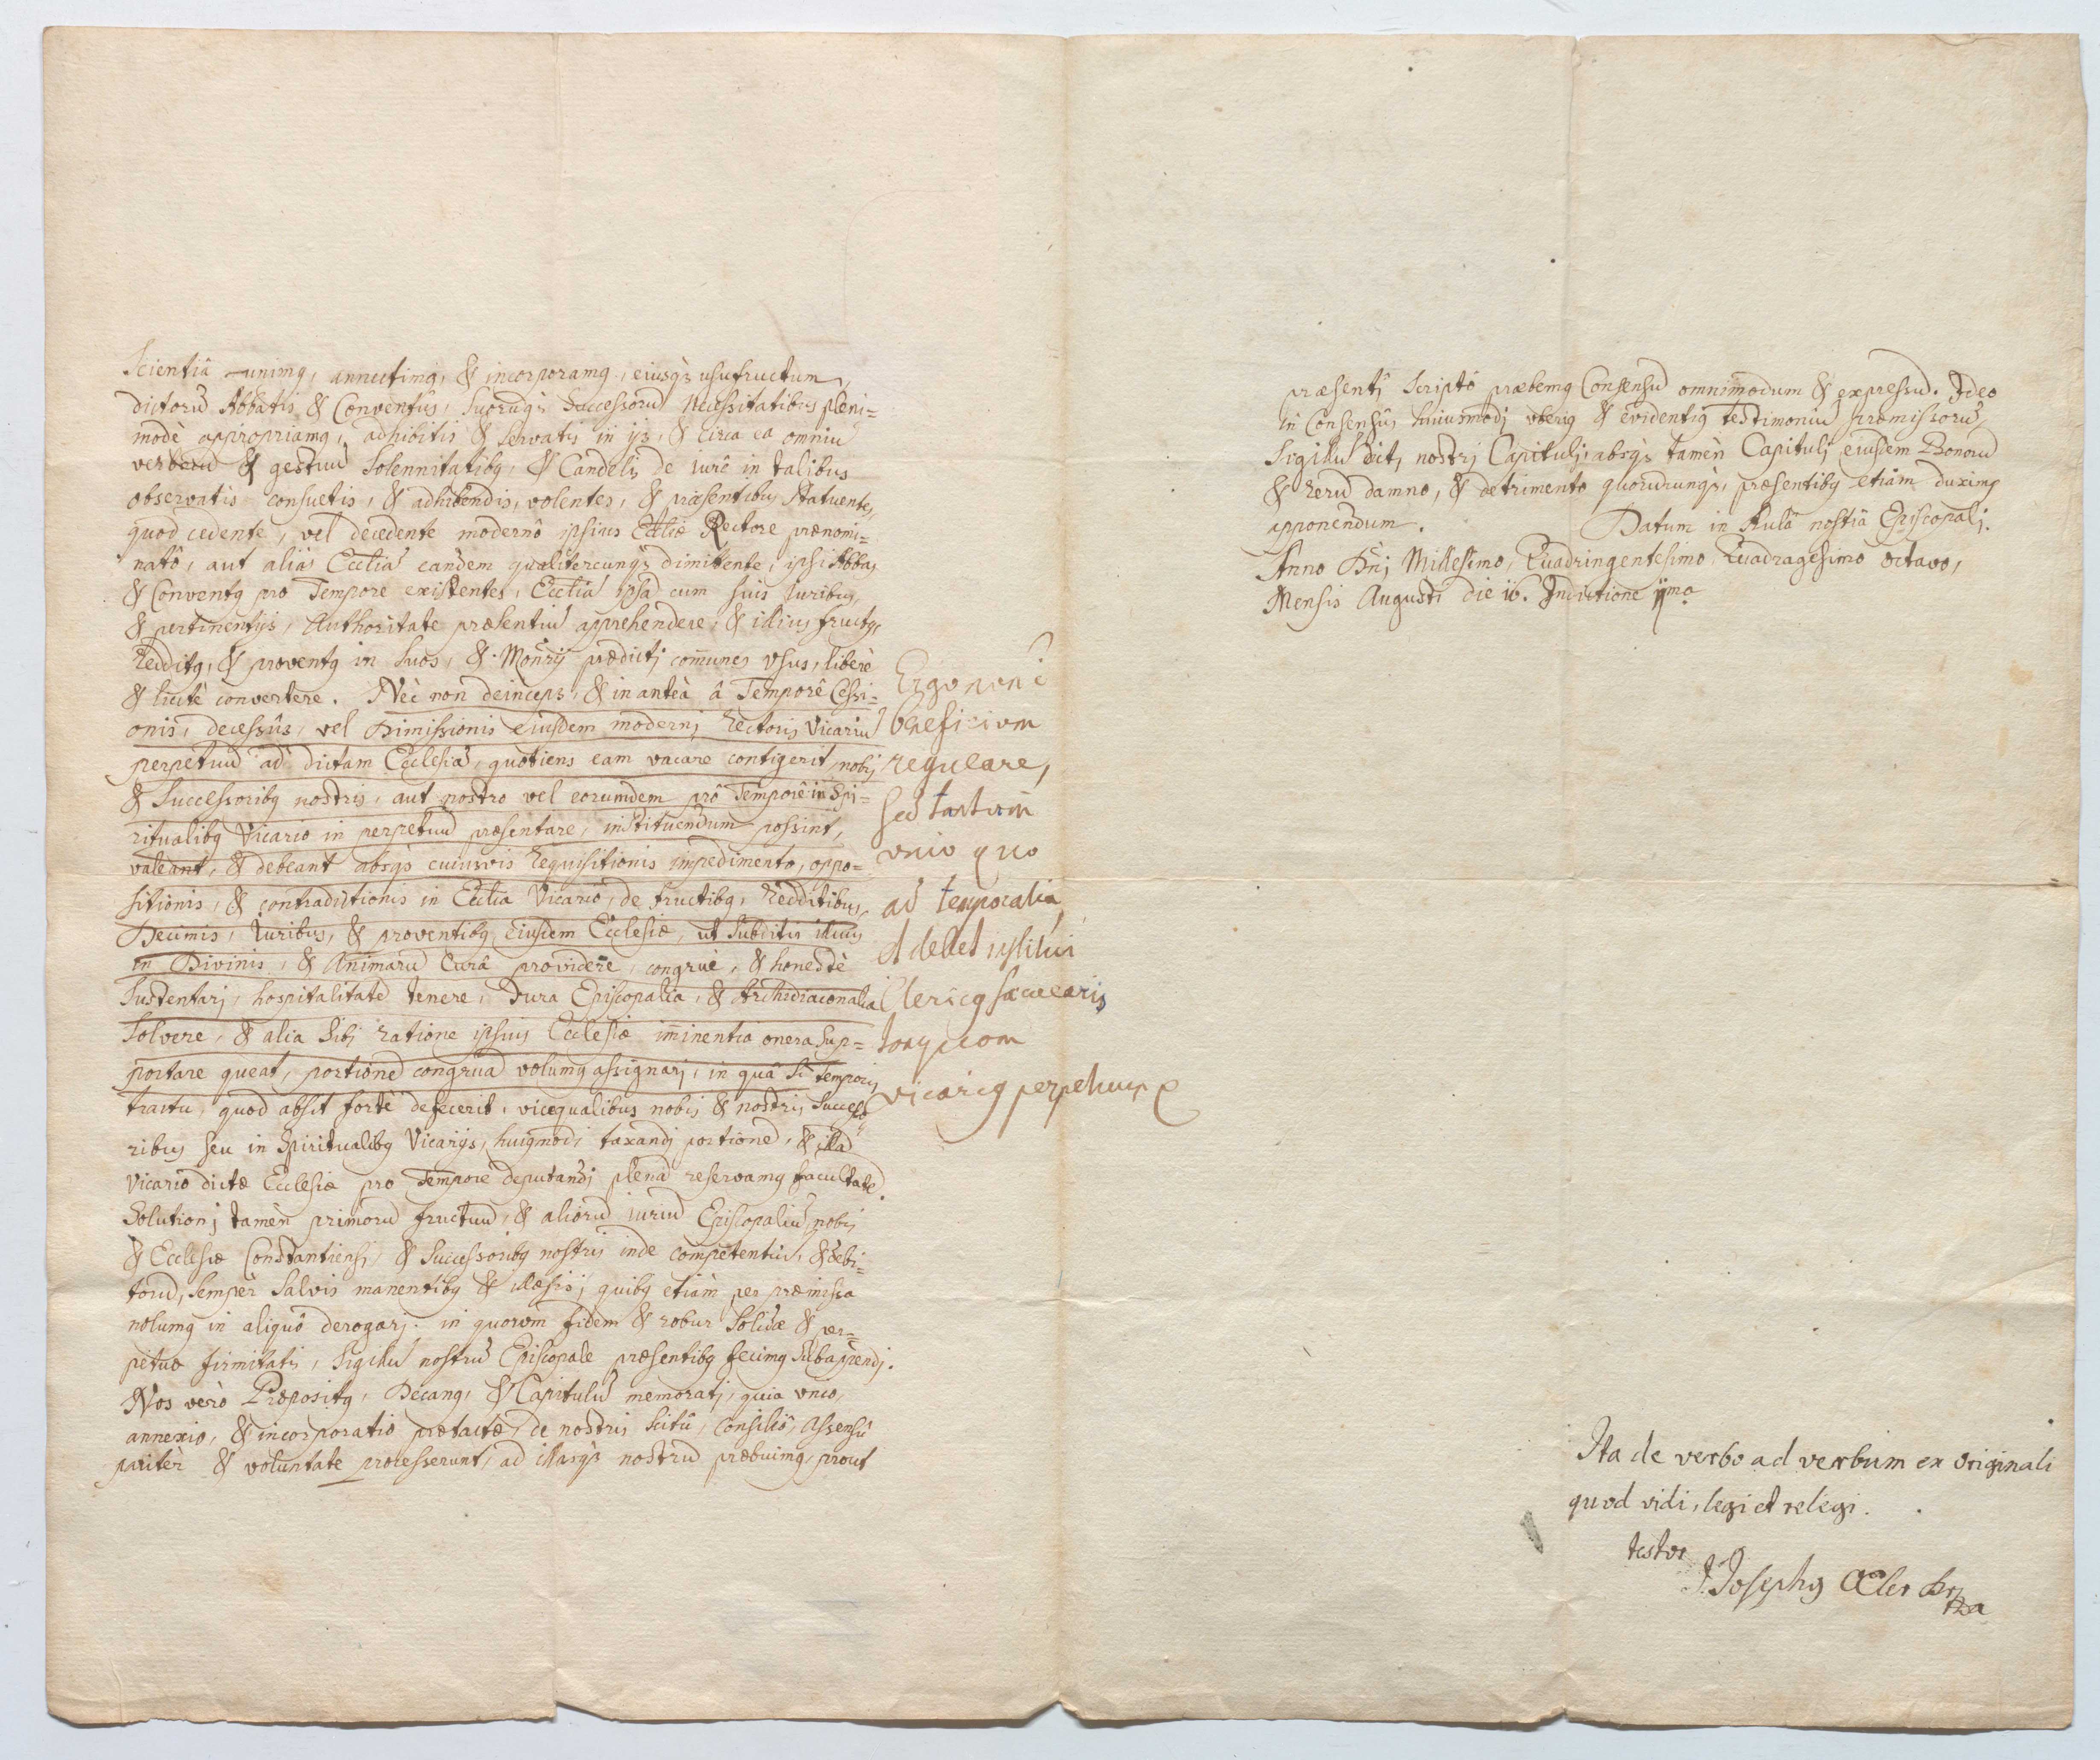 Scientiâ unimq, annectimq, & incorporamq, eiusqз usufructum,
dictorũ Abbatis & Conventûs, suorũqз Successorũ necessitatibus pleni=
modè appropriamq, adhibitis & servatis in ijs, & circa ea omniũ
verborũ & gestuũ Solennitatibq, & Candelis de iurê in talibus
observatis consuetis, & adhibendis, volentes, & præsentibus statuentes,
quod cedente, vel decedente modernô ipsius Eccliæ Rectore prænomi=
natô, aut aliàs Eccliã eandem qualitercunqз dimittente, ipsi Abbas
& Conventq pro Tempore existentes, Eccliã ipsã cum suis Juribus,
& pertinentijs, Authoritate præsentiũ apprehendere, & illius fructq,
Redditq, & proventq in suos, & Monrij prædictj com̃unes vsus, liberè
& licitè convertere. Nèc non deinceps, & in anteà â Temporê Cessi=
onis, decessûs, vel Dimissionis eiusdem modernj Rectoris Vicariũ
perpetuũ ad dictam Ecclesiã, quotiens eam vacare contigerit, nobis
& Successoribq nostris, aut nostro vel eorumdem prô Temporê in Spi=
ritualibq Vicario in perpetuũ præsentare, instituendum possint,
valeant, & debeant absqз cuiusvis Requisitionis impedimento, oppo=
sitionis, & contradictionis in Ecclia Vicariô, de fructibq, Redditibus,
Decimis, Juribus, & proventibq eiusdem Ecclesiæ, ut Subditis illius
in Divinis, & Animarũ Curâ providere, congruè, & honestè
Sustentarj, hospitalitatẽ tenere, Jura Episcopalia, & Archidiaconalia
Solvere, & alia Sibj ratione ipsius Ecclesiæ im̃inentia onera Sup=
portare queat, portionẽ congruã volumq assignarj, in quâ Si Temporis
tractu, quod absit fortè defecerit, vicequalibus nobis & nostris Successo
ribus seu in Spiritualibq Vicarijs, huiqmodi taxandj portionẽ, & illã
Vicario dictæ Ecclesiæ pro Tempore deputandj plenã reservamq facultatẽ.
Solutionj tamèn primorũ fructuũ, & aliorũ iuriũ Episcopaliũ nobis
& Ecclesiæ Constantiensj, & Successoribq nostris inde competentiũ, & debi=
torũ, Sempèr Salvis manentibq & illæsis, quibq etiàm per præmissa
nolumq in aliquô derogarj. in quorum fidem & robur Solidæ & per=
petuæ firmitatis, Sigillũ nostrũ Episcopale præsentibq fecimq Subappendj.
Nos verò Præpositq, Decanq, & Capitulũ memoratj, quia vnio,
annexio, & incorporatio prætactæ, de nostris Scitû, Consiliô, Assensû
paritèr & voluntate processerunt, ad illasqз nostrũ præbuimq, prout
Ergo non ẽ
b̃neficium
regulare,
sed tantum
unio quo
ad temporalia,
et debet institui
Clericq sæcularis
tanquam
vicariq perpetuus
præsentj Scriptô præbemq Consensũ omnimodum & expressũ. Ideo
in Consensûs huiusmodj & evidentiq testimoniũ præmissorũ,
Sigillũ dictj nostrj Capitulj, absqз tamèn Capitulj eiusdem Bonorũ
& rerũ damno, & detrimento quorurunqз, præsentibq etiàm duximq
apponendum. Datum in Aulâ nostrâ Episcopalj.
Anno Dñj Millesimo, Quadringentesimo, Quadragesimo octavo,
Mensis Augusti die 16. Indictione ijma.
Ita de verbo ad verbum ex originali
quod vidi, legi et relegi.
testor
J. Josephq